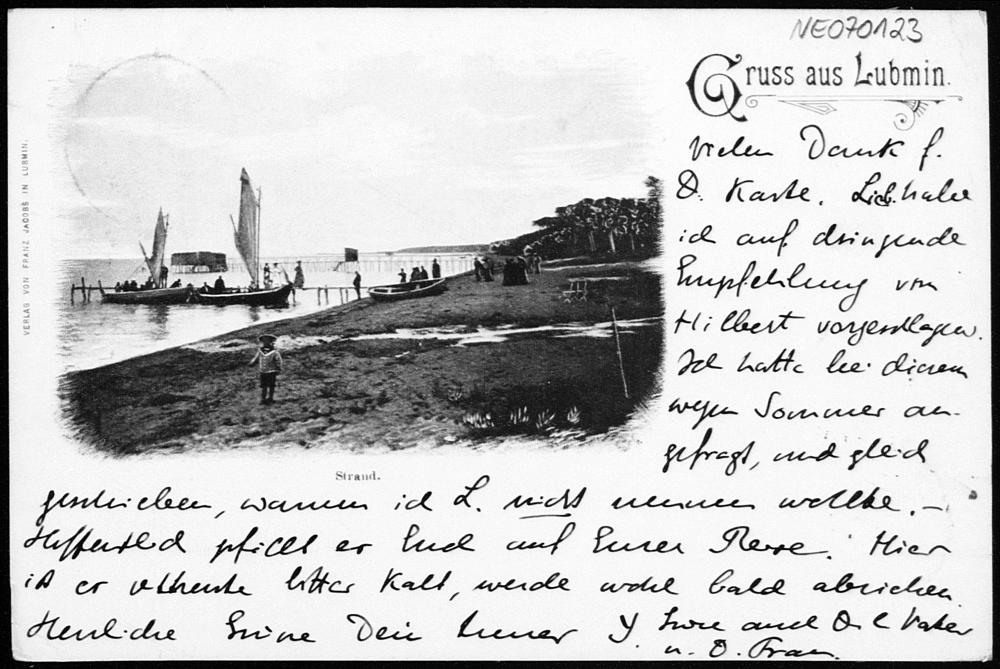 NE070123
Gruss aus Lubmin.
VERLAG VON FRANZ JACOBS IN LUBMIN.
Vielen Dank f.
D. Karte. Lieb. habe
ich auf dringende
Empfehlung von
Hilbert vorgeschlagen.
Ich hatte bei diesem
wegen Sommer an-
gefragt, und gleich
Strand.
geschrieben, warum ich L. nicht nennen wollte. –
Hoffentlich er Euch auf Eurer Reise. Hier
ist er bitter kalt, werde wohl bald abreisen.
Herzliche Grüße Dein
u. D. Frau.